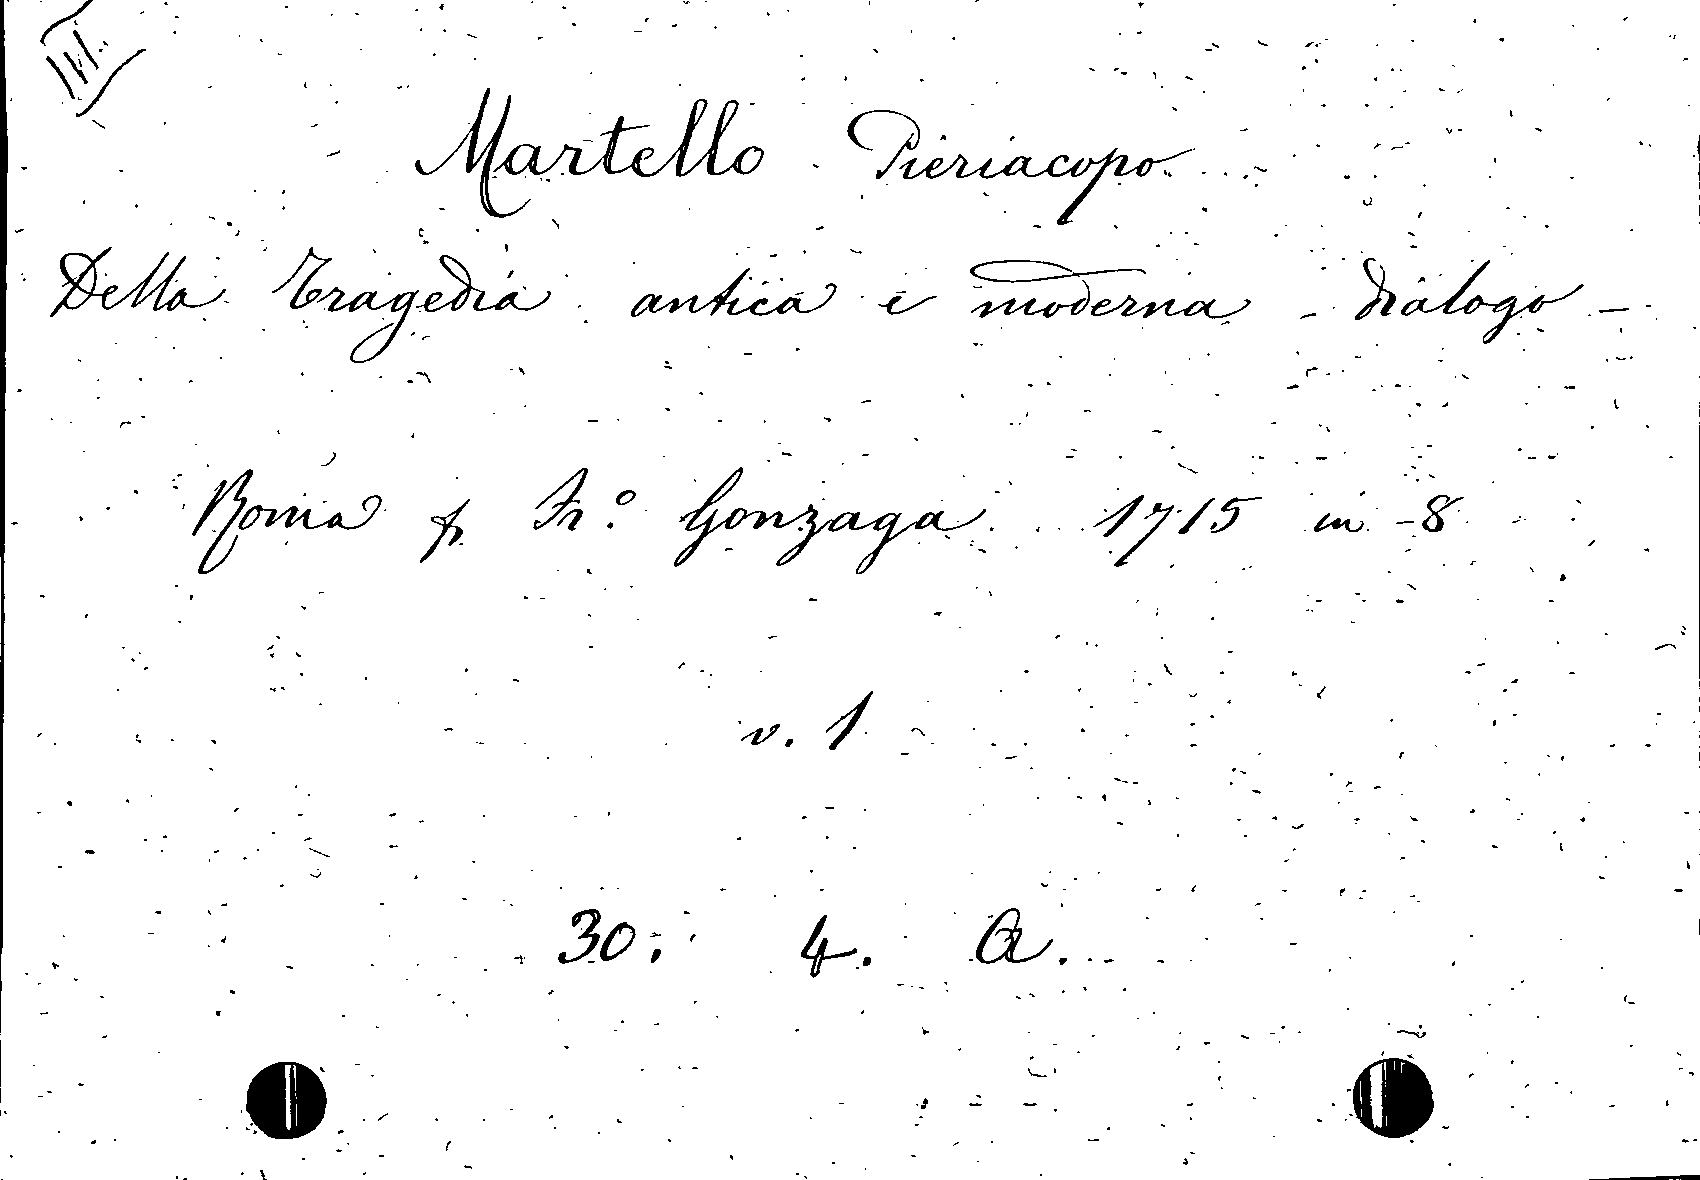 III.
Martello Pieriacopo
Della Tragedia antica e moderna - dialogo -
Roma p Fr.º Gonzaga 1715 in-8
v. 1
30. 4. A.